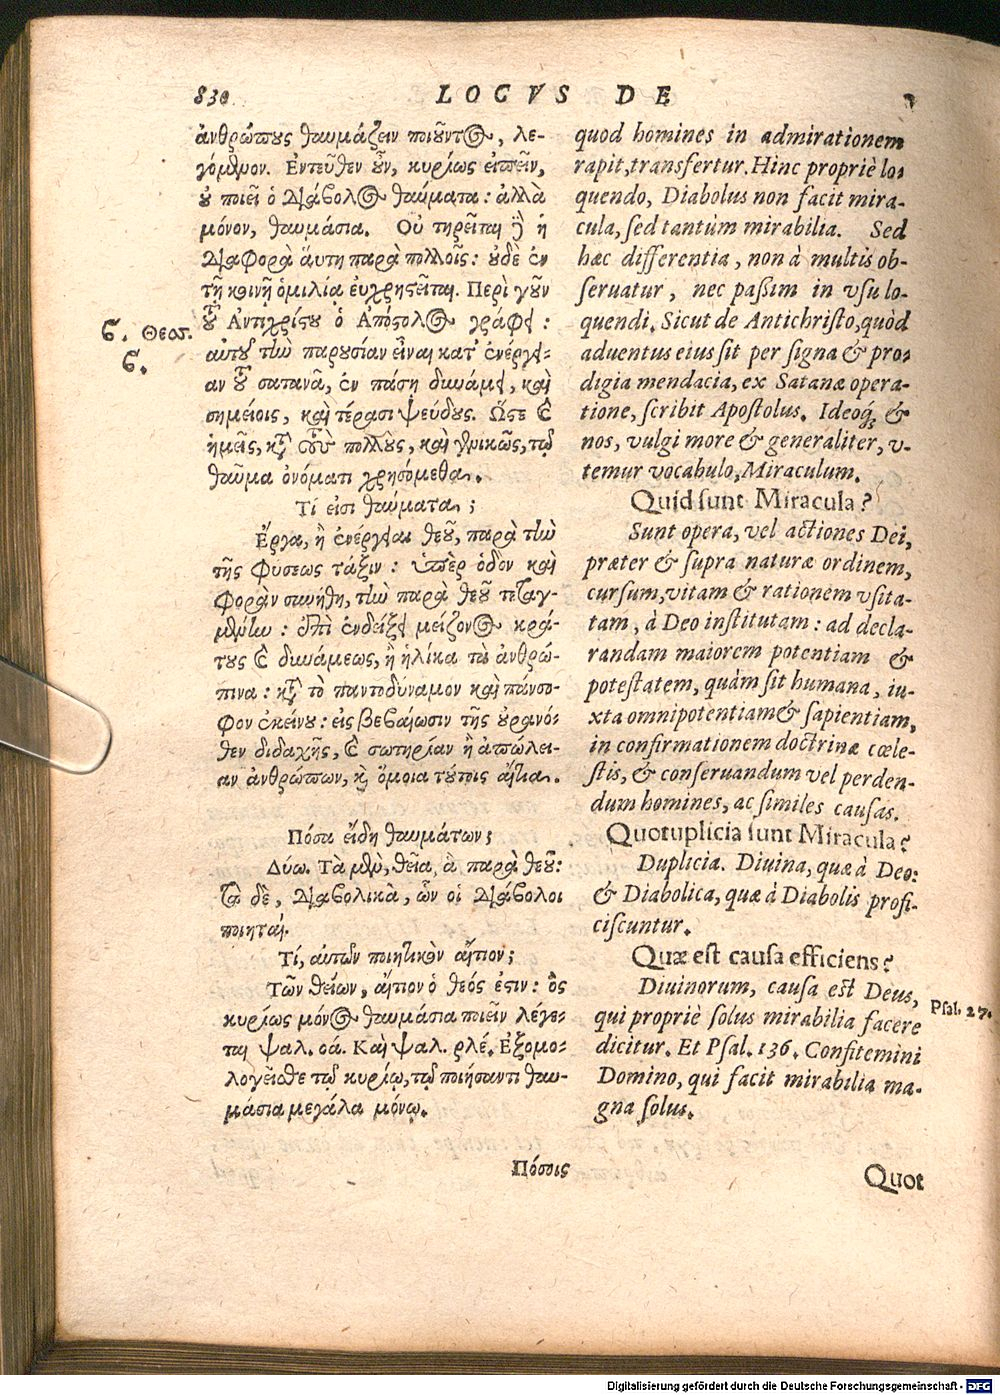 830 LOCVS DE
ἀνθρώπους θαυμάζειν ποιοῦντος, λε-
γόμενον. Ἐντεῦθεν οὖν, κυρίως εἰπεῖν,
οὐ ποιεῖ ὁ Διάβολος θαύματα: ἀλλὰ
μόνον, θαυμάσια. Οὐ τηρεῖται δὲ ἡ
Διαφορὰ αὕτη παρὰ πολλοῖς: οὐδὲ ἐν
τῇ κοινῇ ὁμιλίᾳ εὐχρηστεῖται. Περὶ γοῦν
τοῦ Ἀντιχρίστου ὁ Ἀπόστολος γράφει:
αὐτοῦ τὴν παρουσίαν εἶναι κατ' ἐνέργει-
αν τοῦ σατανᾶ, ἐν πάσῃ δυνάμει, καὶ
σημείοις, καὶ τέρασι ψεύδους. Ὥστε καὶ
ἡμεῖς, κατὰ τοὺς πολλοὺς, καὶ γενικῶς, τῷ
θαῦμα ὀνόματι χρησόμεθα.
Τί εἰσι θαύματα;
Ἔργα, ἢ ἐνέργειαι θεοῦ, παρὰ τὴν
τῆς φύσεως τάξιν: ὑπὲρ ὁδὸν καὶ
φορὰν συνήθη, τὴν παρὰ θεοῦ τεταγ-
μένην: ἐπὶ ἐνδείξει μείζονος κρά-
τους καὶ δυνάμεως, ἢ ἡλίκα τὰ ἀνθρώ-
πινα: κατὰ τὸ παντοδύναμον καὶ πάνσο-
φον ἐκείνου: εἰς βεβαίωσιν τῆς οὐρανό-
θεν διδαχῆς, καὶ σωτηρίαν ἢ ἀπώλει-
αν ἀνθρώπων, καὶ ὅμοια τούτοις αἴτια.
Πόσα εἴδη θαυμάτων;
Δύω. Τὰ μὲν, θεῖα, ἃ παρὰ θεοῦ:
τὰ δὲ, Διαβολικὰ, ὧν οἱ Διάβολοι
ποιηταί.
Τί, αὐτῶν ποιητικὸν αἴτιον;
Τῶν θείων, αἴτιον ὁ θεός ἐστιν: ὃς
κυρίως μόνος θαυμάσια ποιεῖν λέγε-
ται ψαλ. οά. Καὶ ψαλ. ρλέ. Ἐξομο-
λογεῖσθε τῷ κυρίῳ, τῷ ποιήσαντι θαυ-
μάσια μεγάλα μόνῳ.
Πόσοις
ϛ. Θεσς.
ϛ.
quod homines in admirationem
rapit, transfertur. Hinc propriè lo-
quendo, Diabolus non facit mira-
cula, sed tantùm mirabilia. Sed
hæc differentia, non à multis ob-
seruatur, nec paßim in vsu lo-
quendi. Sicut de Antichristo, quòd
aduentus eius sit per signa & pro-
digia mendacia, ex Satanæ opera-
tione, scribit Apostolus. Ideoq́ꝫ &
nos, vulgi more & generaliter, v-
temur vocabulo, Miraculum.
Quid sunt Miracula?
Sunt opera, vel actiones Dei,
præter & supra naturæ ordinem,
cursum, vitam & rationem vsita-
tam, à Deo institutam: ad decla-
randam maiorem potentiam &
potestatem, quàm sit humana, iu-
xta omnipotentiam & sapientiam,
in confirmationem doctrinæ cœle-
stis, & conseruandum vel perden-
dum homines, ac similes causas.
Quotuplicia sunt Miracula?
Duplicia. Diuina, quæ à Deo:
& Diabolica, quæ à Diabolis profi-
ciscuntur.
Quæ est causa efficiens?
Diuinorum, causa est Deus,
qui propriè solus mirabilia facere
dicitur. Et Psal. 136. Confitemini
Domino, qui facit mirabilia ma-
gna solus.
Quot
Psal. 27.
Digitalisierung gefördert durch die Deutsche Forschungsgemeinschaft - DFG